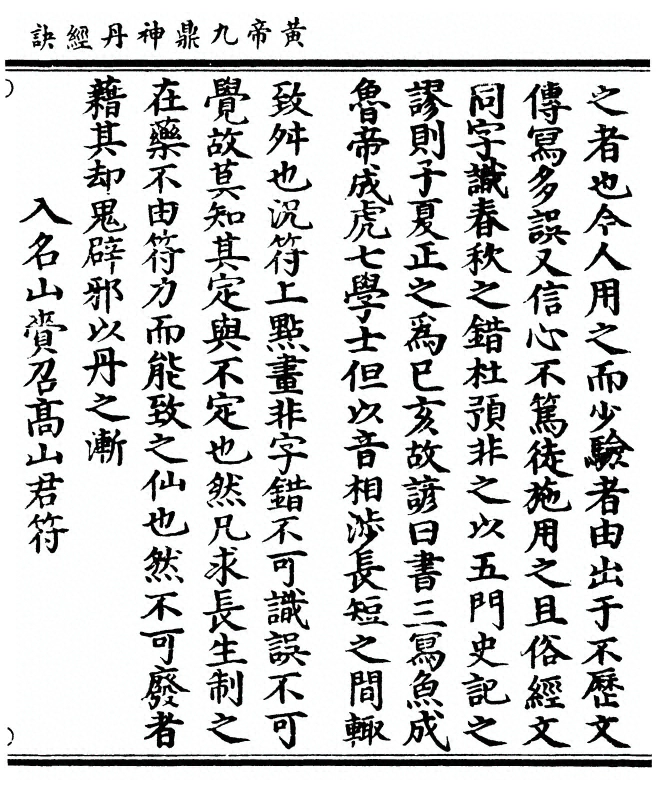 黃帝九鼎神丹經訣
之者也今人用之而少驗者由出于不歷文
傳寫多誤又信心不篤徒施用之且俗經文
同字識春秋之錯杜預非之以五門史記之
謬則子夏正之為已亥故諺曰書三寫魚成
魯帝成虎七學士但以音相涉長短之間輙
致舛也況符上點畫非字錯不可識誤不可
覺故莫知其定與不定也然凡求長生制之
在藥不由符力而能致之仙也然不可廢者
藉其却鬼辟邪以丹之漸
入名山賫召高山君符